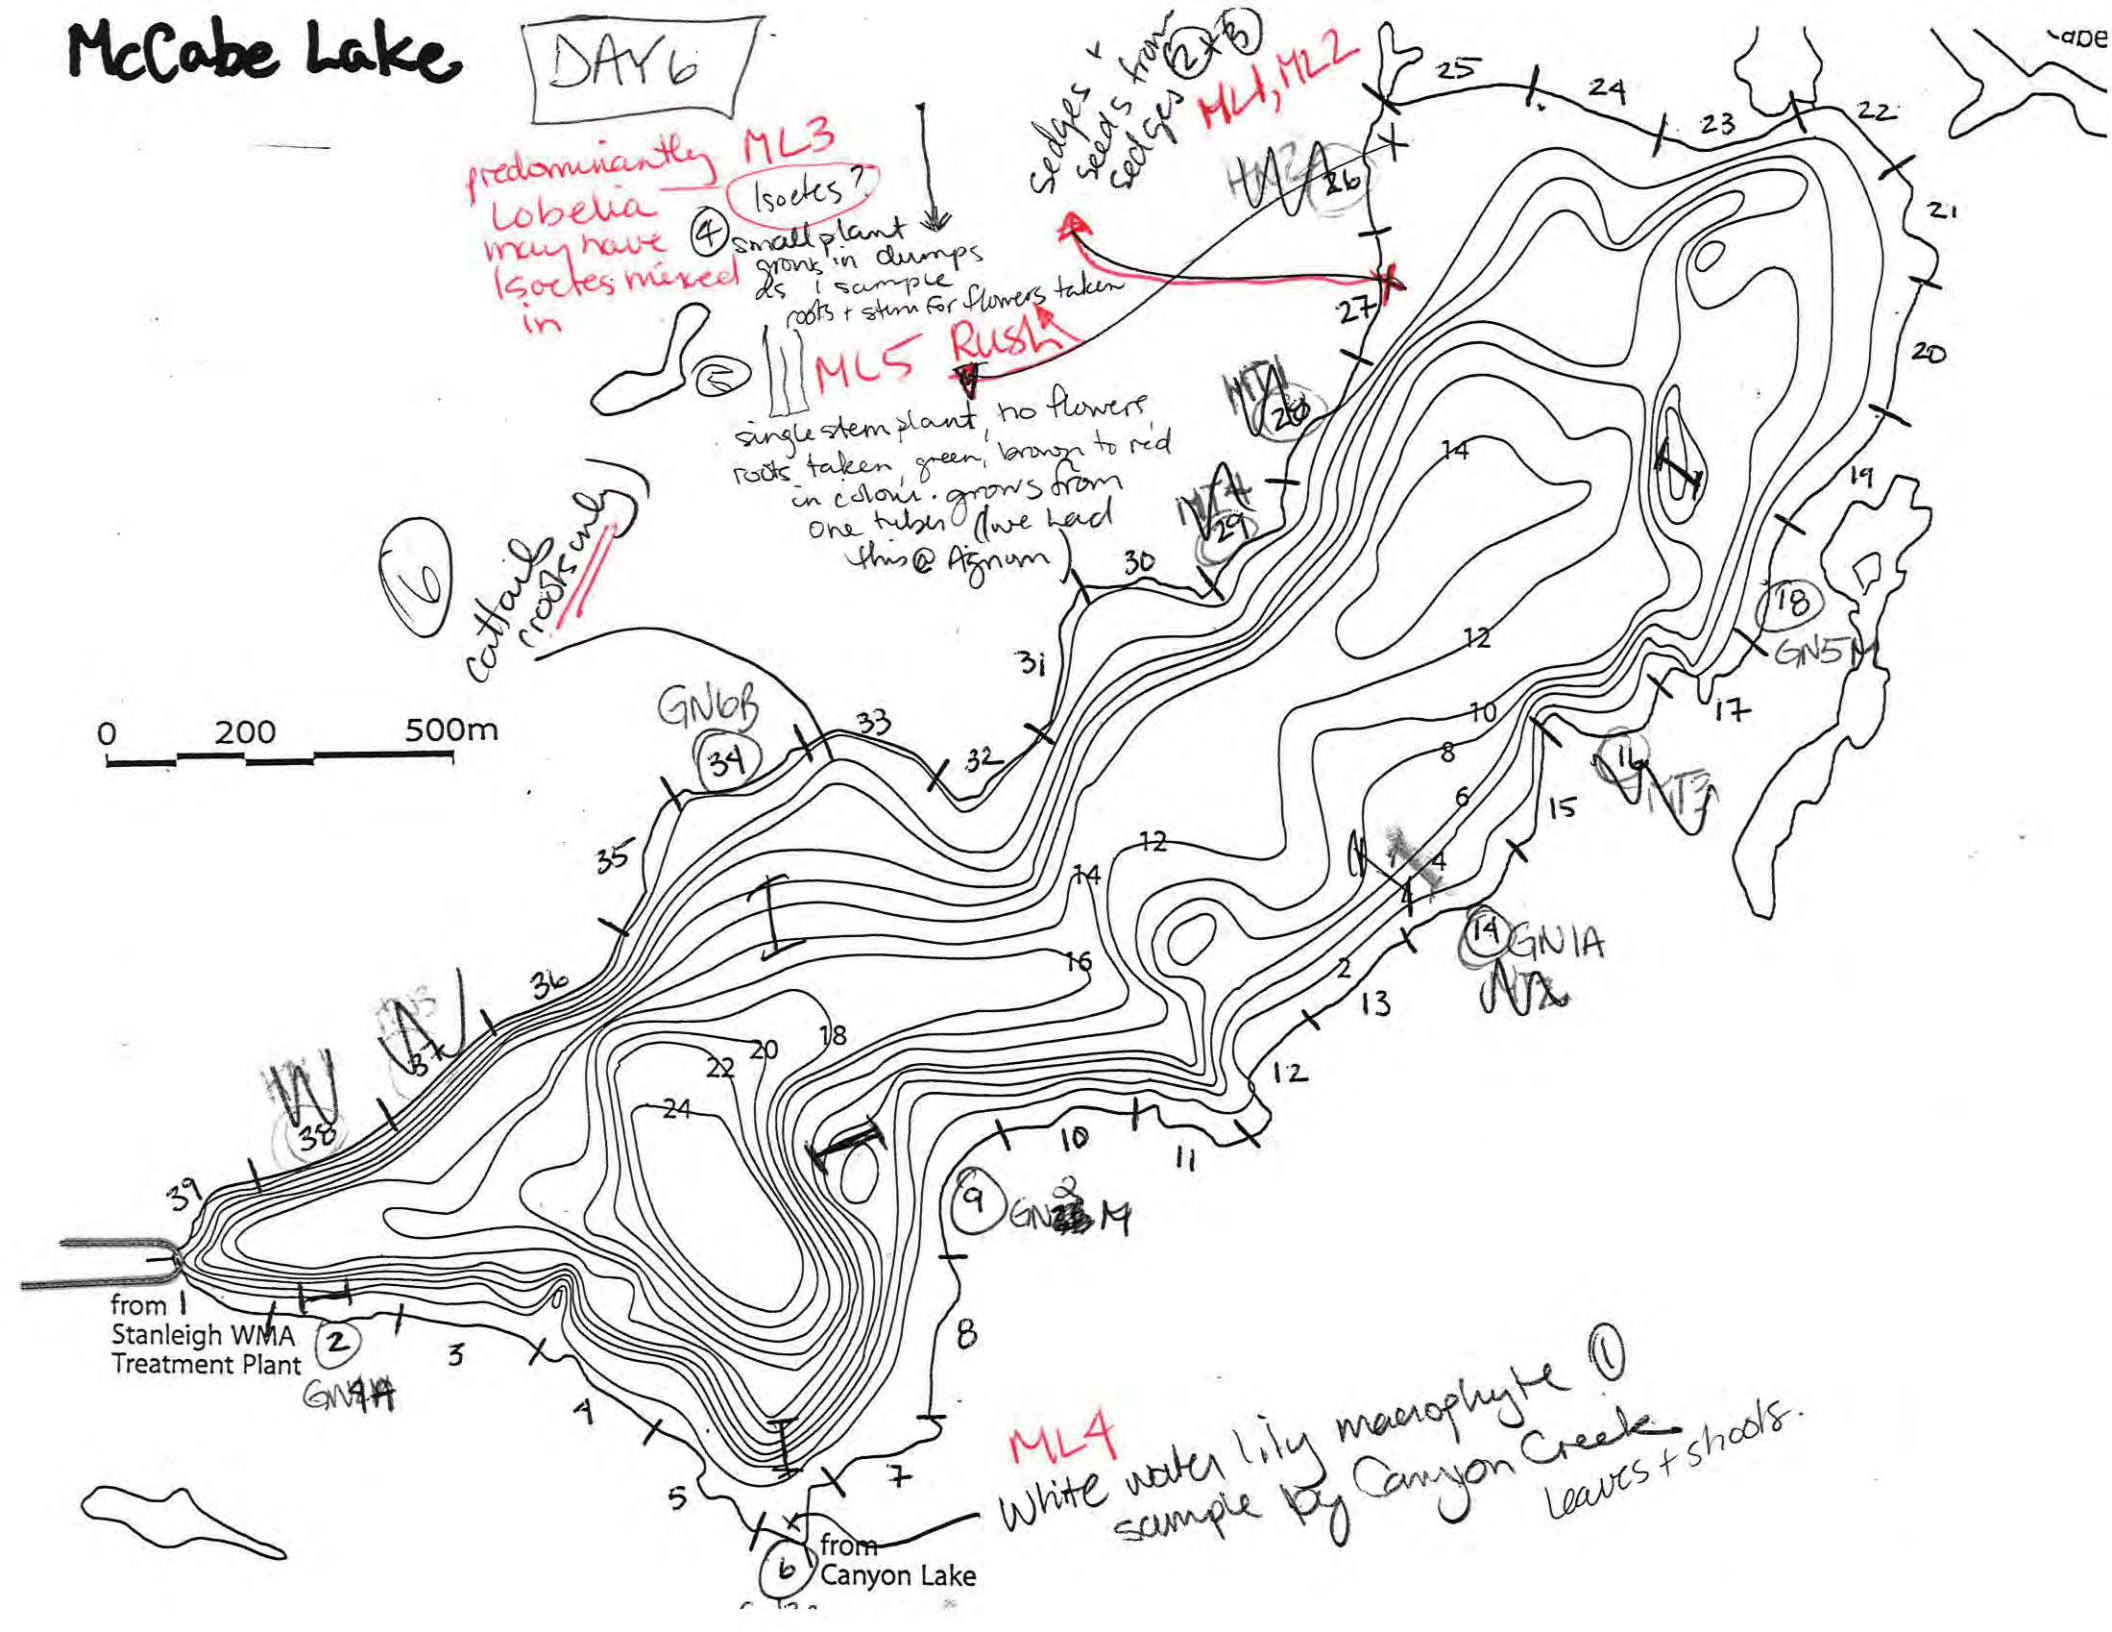 McCabe Lake
DAY 6
sedges +
seeds from
sedges 2 + 3
ML1, ML2
predominantly
Lobelia
may have
Isoetes mixed
in
ML3
Isoetes?
4 small plant
grows in clumps
as 1 sample
roots + stem for flowers taken
5
ML5 Rush
single stem plant, no flowers
roots taken, green, brown to red
in colour. grows from
one tuber (we had
this @ Agnum)
6
cattails
(roots only)
0 200 500m
25
24
23
22
21
20
19
18
GN5M
17
16
15
14 GN1A
13
12
11
10
9 GN2M
8
7
6
5
4
3
2
1
26
27
28
29
30
31
32
33
GN6B
34
35
36
37
38
39
14
12
10
8
6
4
2
12
14
16
18
20
22
24
from
Stanleigh WMA
Treatment Plant
from
Canyon Lake
ML4
White water lily macrophyte 1
sample by Canyon Creek
leaves + shoots.